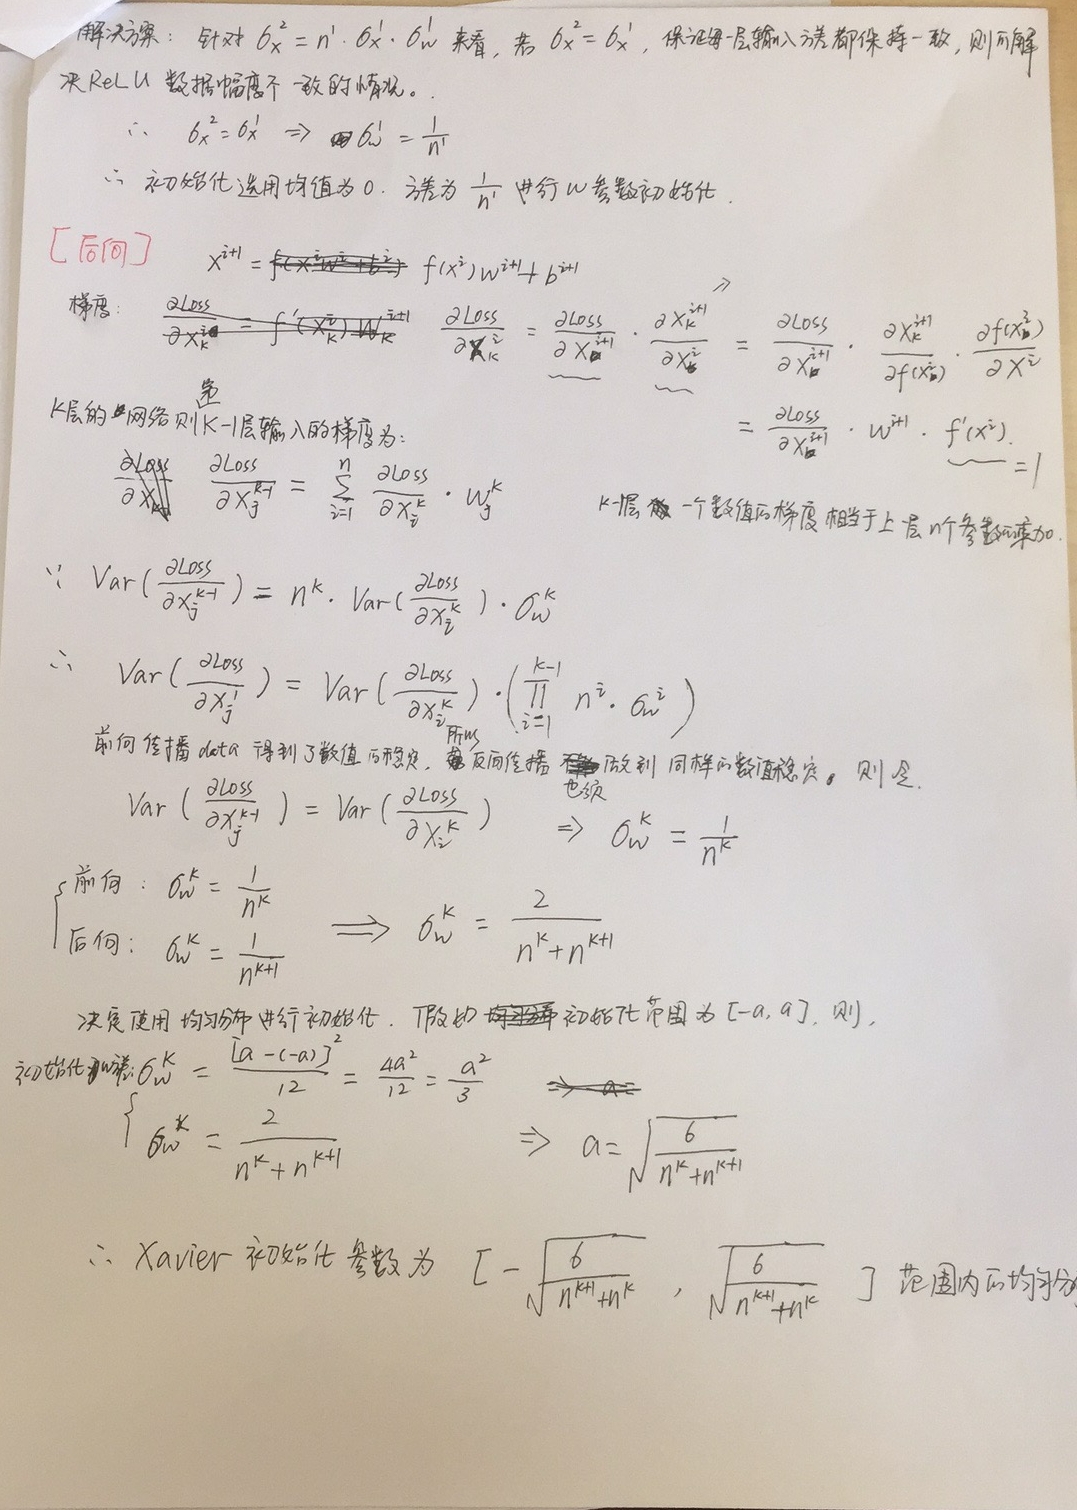 解决方案: 针对 σx² = n¹ · σx¹ · σw¹ 来看, 若 σx² = σx¹, 保证每一层输入方差都保持一致, 则可解
决ReLU 数据幅度不一致的情况。
∴ σx² = σx¹ ⇒ σw¹ = 1/n¹
∴ 初始化选用均值为0. 方差为 1/n¹ 进行W参数初始化.
[后向] x^{i+1} = f(x^i)w^{i+1} + b^{i+1}
梯度: ∂Loss/∂x_k^i = ∂Loss/∂x_k^{i+1} · ∂x_k^{i+1}/∂x_k^i = ∂Loss/∂x_k^{i+1} · ∂x_k^{i+1}/∂f(x_k^i) · ∂f(x_k^i)/∂x^i
= ∂Loss/∂x_k^{i+1} · w^{i+1} · f'(x^i). = 1
K层的网络则第K-1层输入的梯度为:
∂Loss/∂x_j^{k-1} = Σ_{i=1}^{n} ∂Loss/∂x_i^k · w_j^k
K-1层一个数值的梯度相当于上层n个参数的累加.
∵ Var(∂Loss/∂x_j^{k-1}) = n^k · Var(∂Loss/∂x_i^k) · σw^k
∴ Var(∂Loss/∂x_j^1) = Var(∂Loss/∂x_i^k) · (∏_{i=1}^{k-1} n^i · σw^i)
前向传播data得到了数值的稳定, 所以反向传播也须做到同样的数值稳定。则令.
Var(∂Loss/∂x_j^{k-1}) = Var(∂Loss/∂x_i^k) ⇒ σw^k = 1/n^k
前向: σw^k = 1/n^k
后向: σw^k = 1/n^{k+1} ⟹ σw^k = 2/(n^k + n^{k+1})
决定使用均匀分布进行初始化. 假如初始化范围为[-a, a]. 则,
初始化方差: σw^k = [a-(-a)]²/12 = 4a²/12 = a²/3
σw^k = 2/(n^k + n^{k+1}) ⇒ a = √(6/(n^k + n^{k+1}))
∴ Xavier 初始化参数为 [-√(6/(n^{k+1} + n^k)), √(6/(n^{k+1} + n^k))] 范围内的均匀分